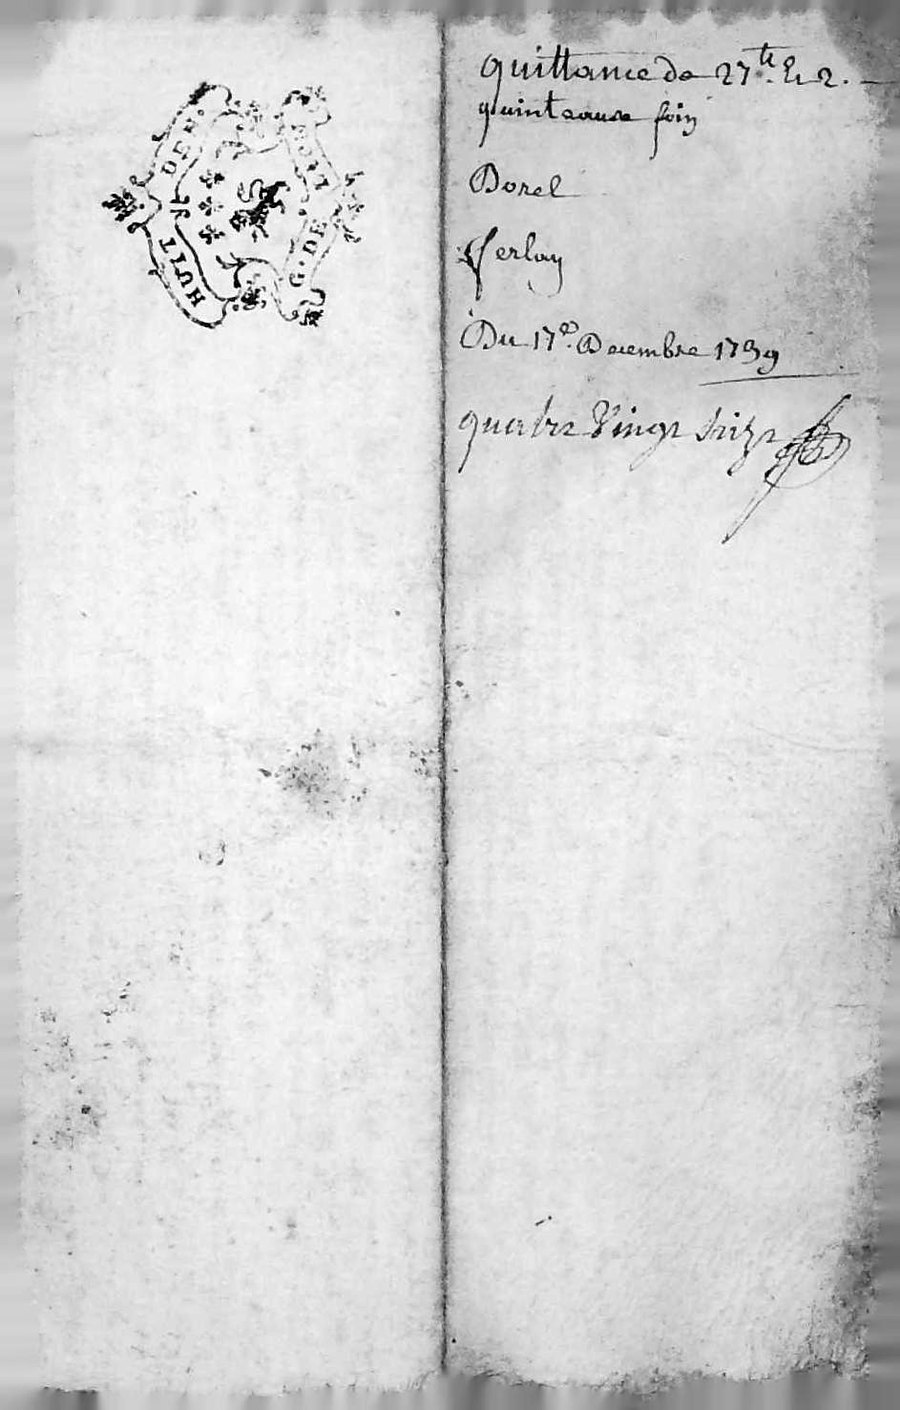 HUIT DEN.
G. DE
quittance de 27tt. Et 2.
quinteaux foin
Borel
Verlay
Du 17e. Decembre 1739
quatre Vingt seize